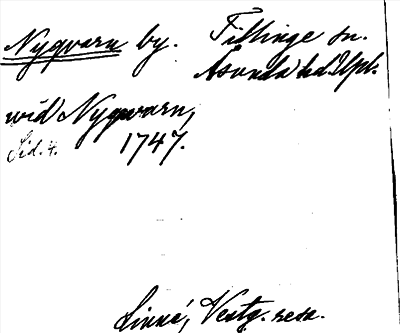 Nyqvarn by. Tillinge sn.
Åsunda hd Upl.
wid Nyqwarn,
Sid. 4. 1747.
Linné, Vestg. resa.